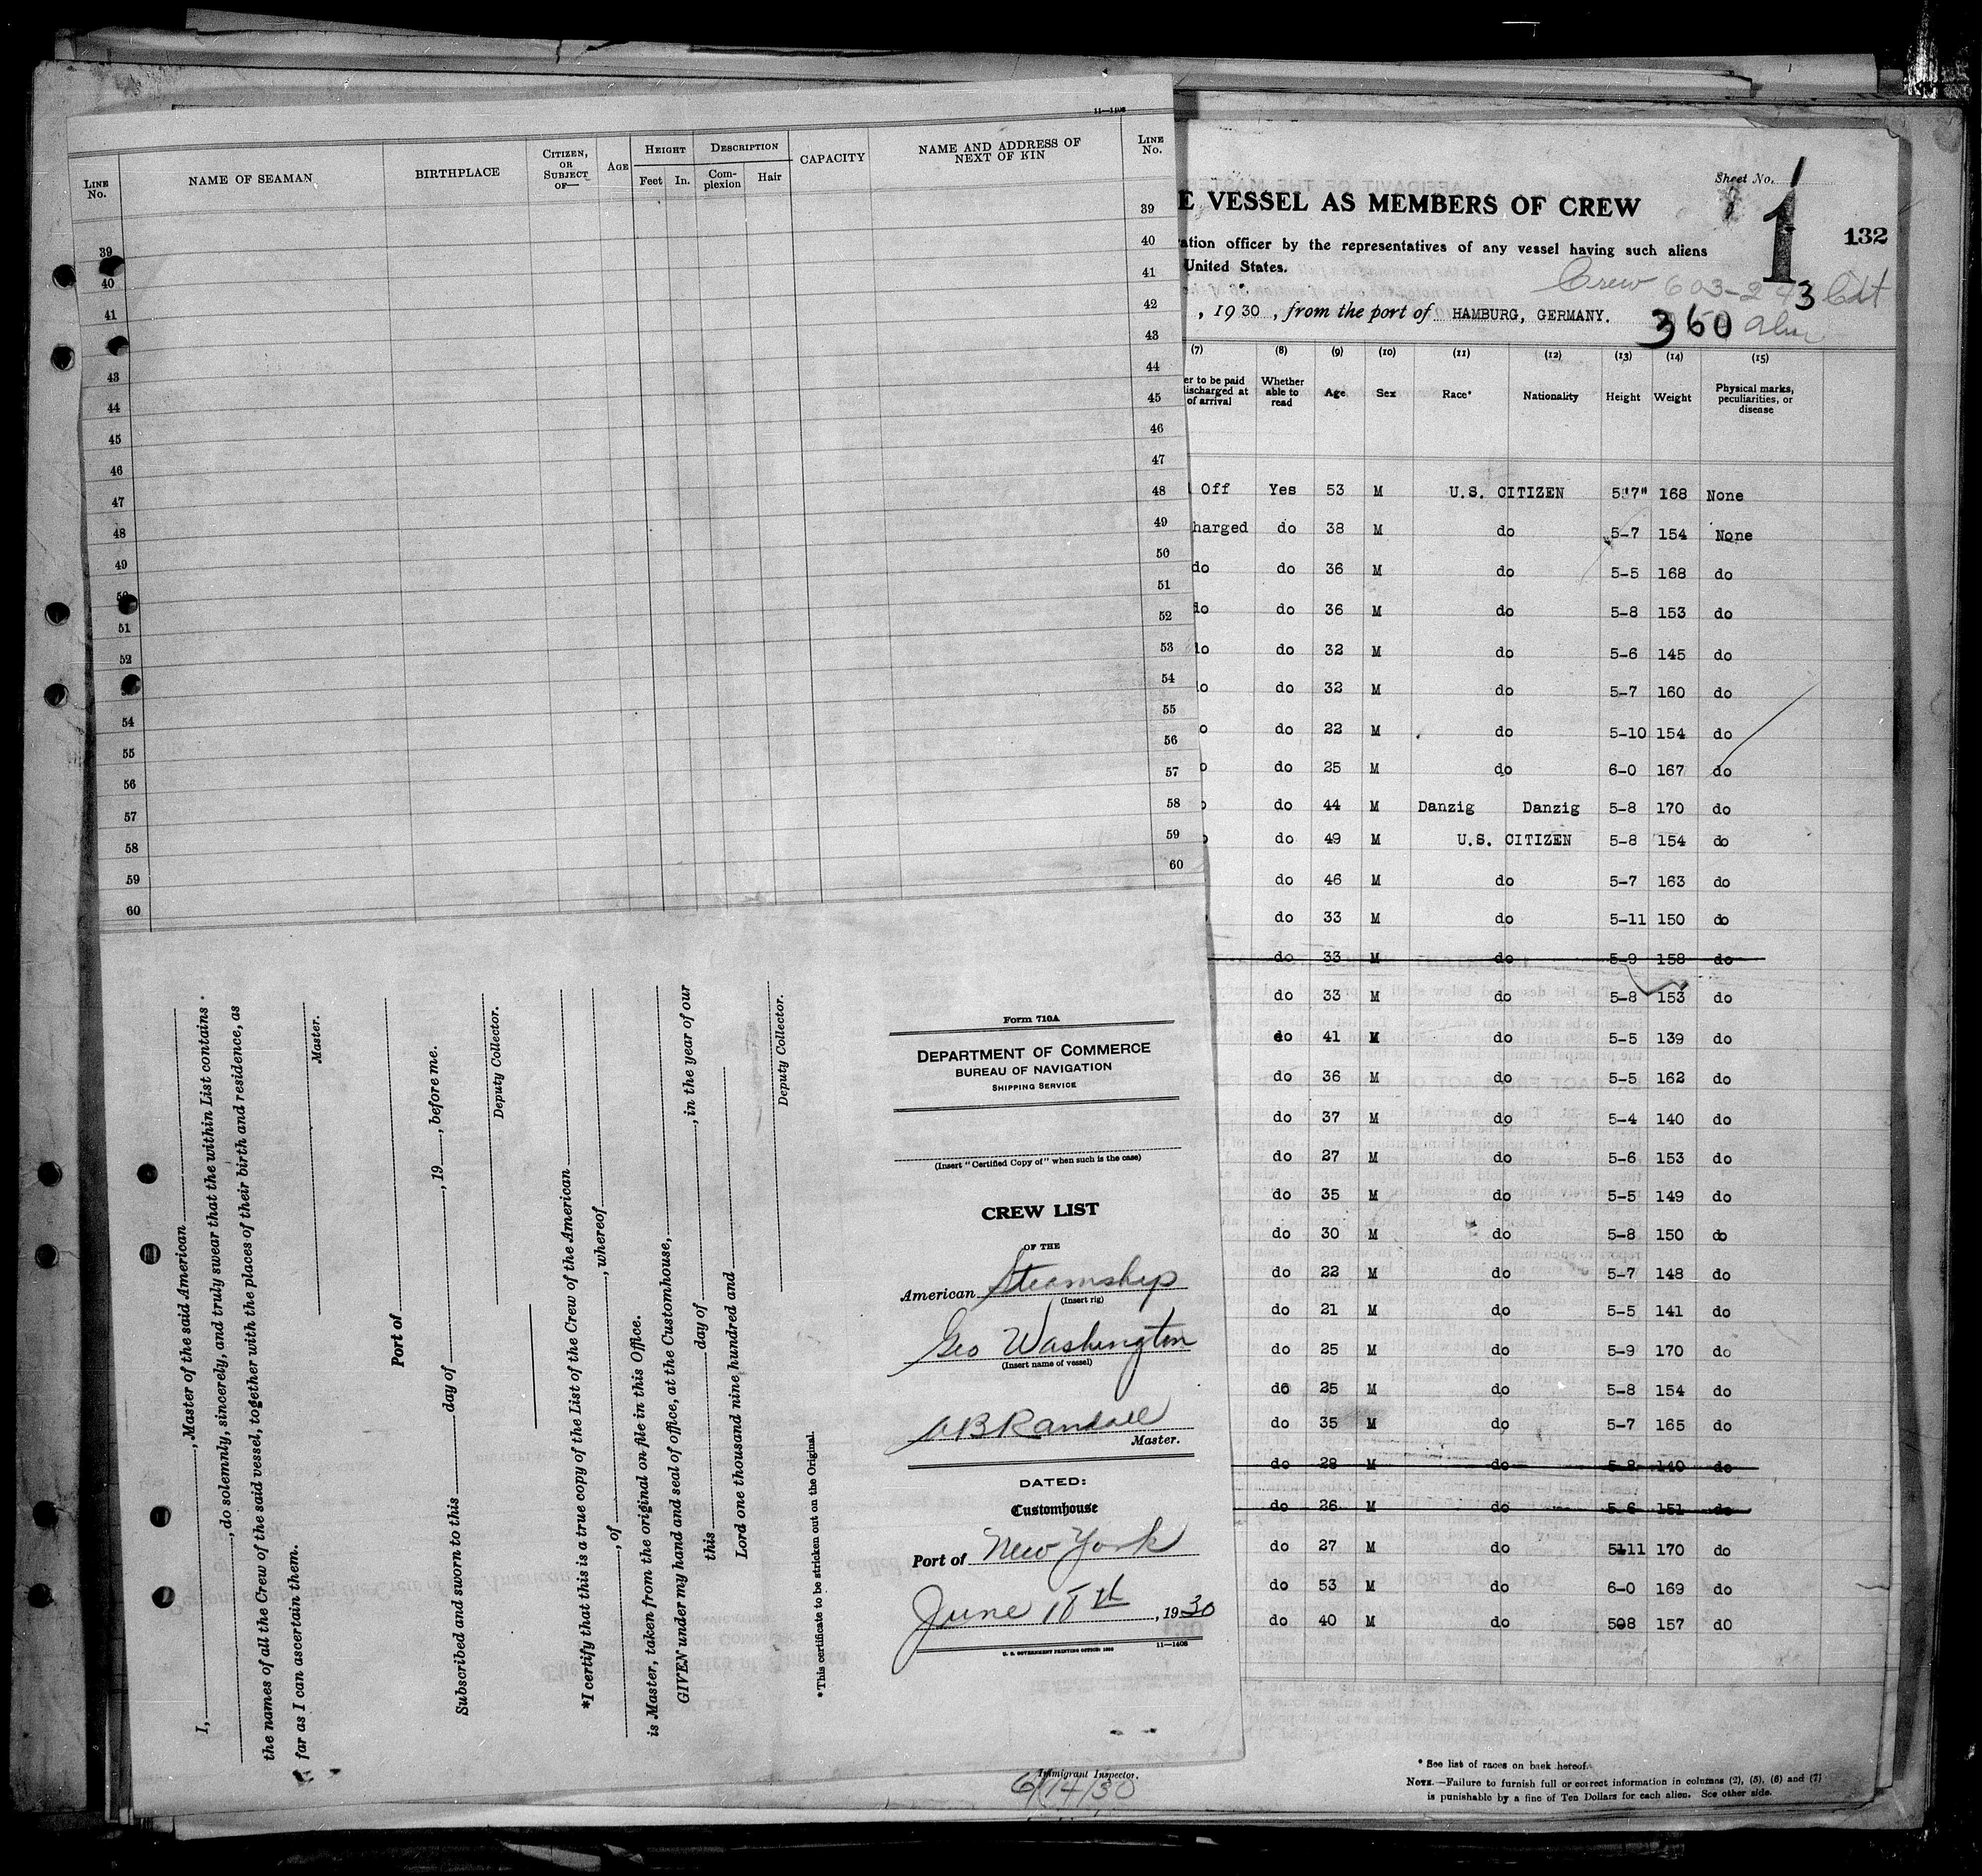 11—1408
LINE No. NAME OF SEAMAN BIRTHPLACE CITIZEN, OR SUBJECT OF— AGE HEIGHT Feet In. DESCRIPTION Complexion Hair CAPACITY NAME AND ADDRESS OF NEXT OF KIN LINE No.
39 39
40 40
41 41
42
43 43
44 44
45 45
46 46
47 47
48 48
49 49
50 50
51 51
52 52
53
54 54
55 55
56 56
57 57
58 58
59 59
60 60
I, , Master of the said American
, do solemnly, sincerely, and truly swear that the within List contains
the names of all the Crew of the said vessel, together with the places of their birth and residence, as
far as I can ascertain them.
Master.
Port of
Subscribed and sworn to this day of , 19 , before me.
Deputy Collector.
*I certify that this is a true copy of the List of the Crew of the American
, of , whereof
is Master, taken from the original on file in this Office.
GIVEN under my hand and seal of office, at the Customhouse,
this day of , in the year of our
Lord one thousand nine hundred and
Deputy Collector.
*This certificate to be stricken out on the Original.
Form 710A
DEPARTMENT OF COMMERCE
BUREAU OF NAVIGATION
SHIPPING SERVICE
(Insert "Certified Copy of" when such is the case)
CREW LIST
OF THE
American Steamship
(Insert rig)
Geo Washington
(Insert name of vessel)
A B Randall
Master.
DATED:
Customhouse
Port of New York
June 18th, 1930
U. S. GOVERNMENT PRINTING OFFICE 11—1408
Immigrant Inspector.
6/14/30
Sheet No. 1
1
132
E VESSEL AS MEMBERS OF CREW
ation officer by the representatives of any vessel having such aliens
United States.
Crew 603-243 Cit
, 1930, from the port of HAMBURG, GERMANY.
360 alien
(7) (8) (9) (10) (11) (12) (13) (14) (15)
er to be paid discharged at of arrival Whether able to read Age Sex Race* Nationality Height Weight Physical marks, peculiarities, or disease
Off Yes 53 M U.S. CITIZEN 5'7" 168 None
harged do 38 M do 5-7 154 None
do do 36 M do 5-5 168 do
do do 36 M do 5-8 153 do
do do 32 M do 5-6 145 do
do do 32 M do 5-7 160 do
o do 22 M do 5-10 154 do
o do 25 M do 6-0 167 do
o do 44 M Danzig Danzig 5-8 170 do
o do 49 M U.S. CITIZEN 5-8 154 do
do 46 M do 5-7 163 do
do 33 M do 5-11 150 do
do 33 M do 5-9 158 do
do 33 M do 5-8 153 do
do 41 M do 5-5 139 do
do 36 M do 5-5 162 do
do 37 M do 5-4 140 do
do 27 M do 5-6 153 do
do 35 M do 5-5 149 do
do 30 M do 5-8 150 do
do 22 M do 5-7 148 do
do 21 M do 5-5 141 do
do 25 M do 5-9 170 do
do 25 M do 5-8 154 do
do 35 M do 5-7 165 do
do 28 M do 5-8 140 do
do 26 M do 5-6 151 do
do 27 M do 5-11 170 do
do 53 M do 6-0 169 do
do 40 M do 5-8 157 dO
* See list of races on back hereof.
NOTE.—Failure to furnish full or correct information in columns (2), (5), (6) and (7)
is punishable by a fine of Ten Dollars for each alien. See other side.